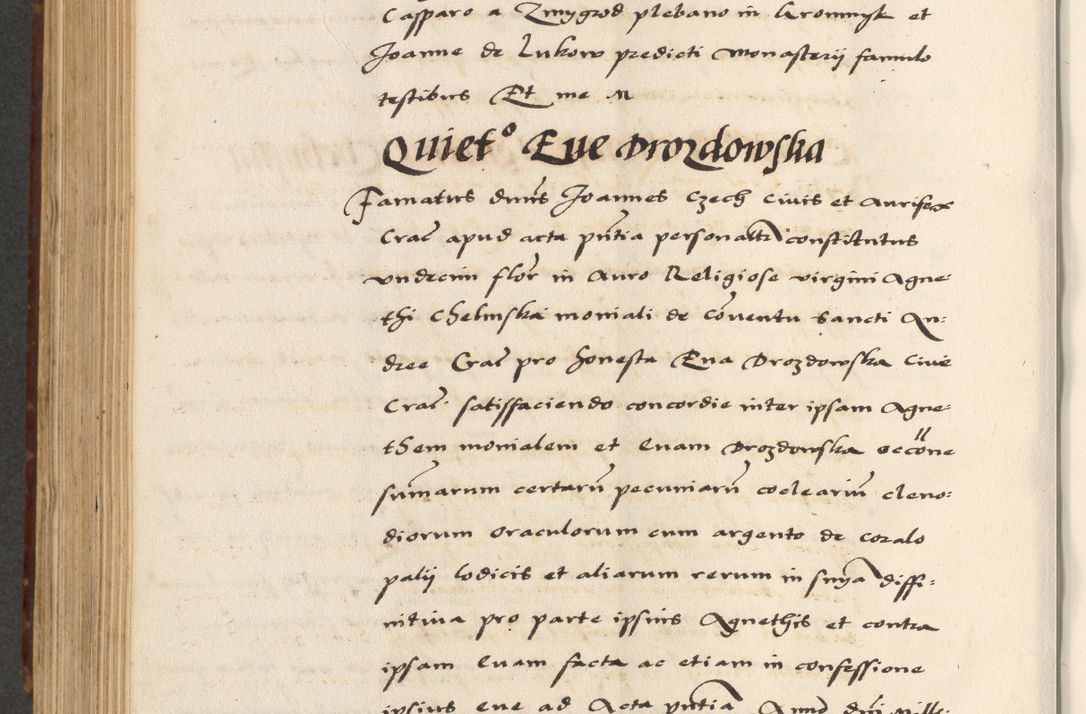 Casparo a Zmygrod plebano in Kromnyk et
Joanne de Lukow predicti monasterii famulo
testibus Et me M
Quiet⁰ Eve Drozdowska
Famatus dnus Joannes Czech civis et aurifex
Crac apud acta pntia personalr constitutus
vndecim flor in auro Religiose virgini Agne-
thi Chelmska moniali de Conventu Sancti An:
dree Crac pro honesta Eva Drozdowska Cive
Crac satisfaciendo concordie inter ipsam Agne:
them monialem et Evam Drozdowska occone
summarum certaru pecuniaru coclearium cleno:
diorum oraculorum cum argento de coralo
palii lodicis et aliarum rerum in snya diffi:
nitiva pro parte ipsius Agnethis et contra
ipsam Evam facta ac etiam in confessione
ipsius eve ad Acta pntia Anno dni mille-